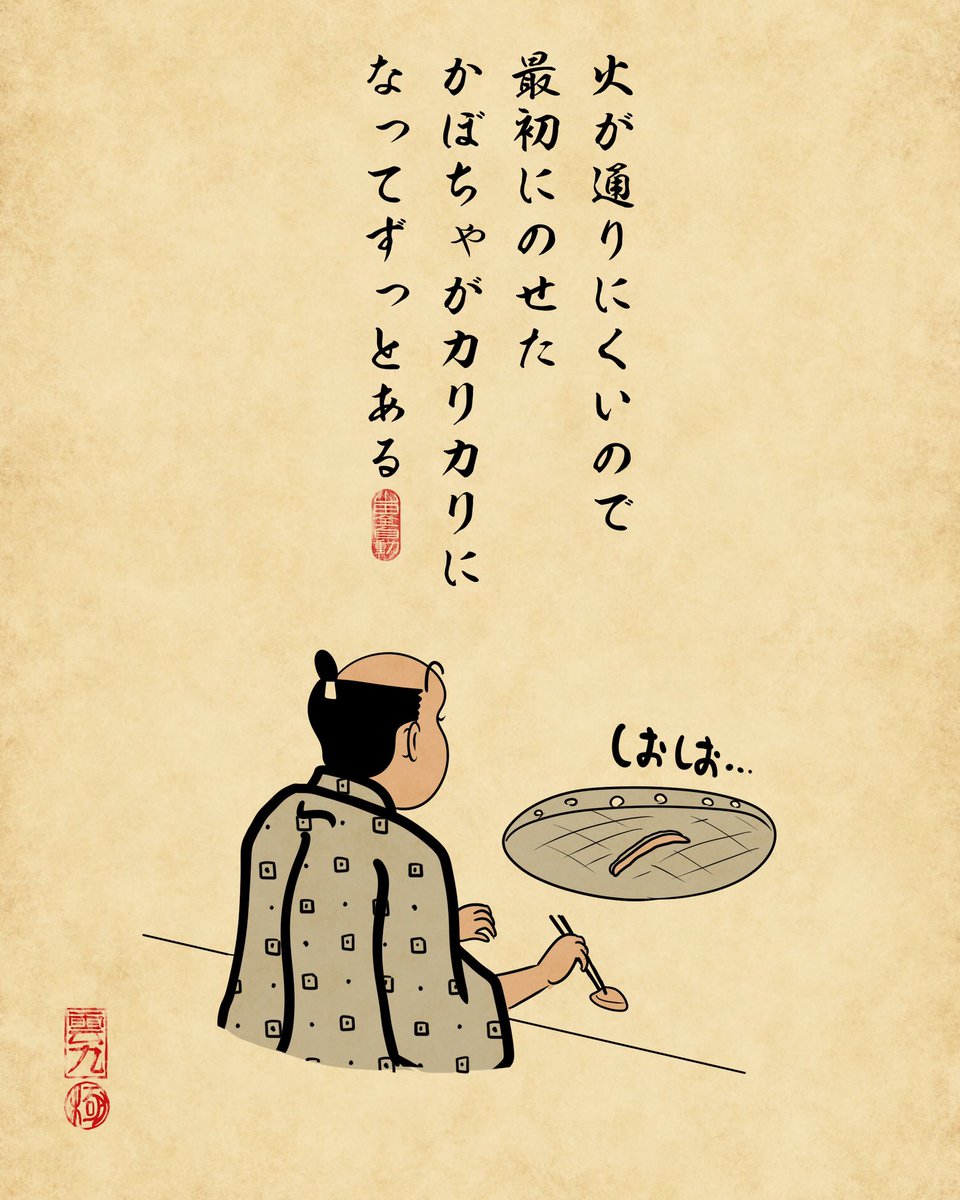 火が通りにくいので
最初にのせた
かぼちゃがカリカリに
なってずっとある
しおしお…